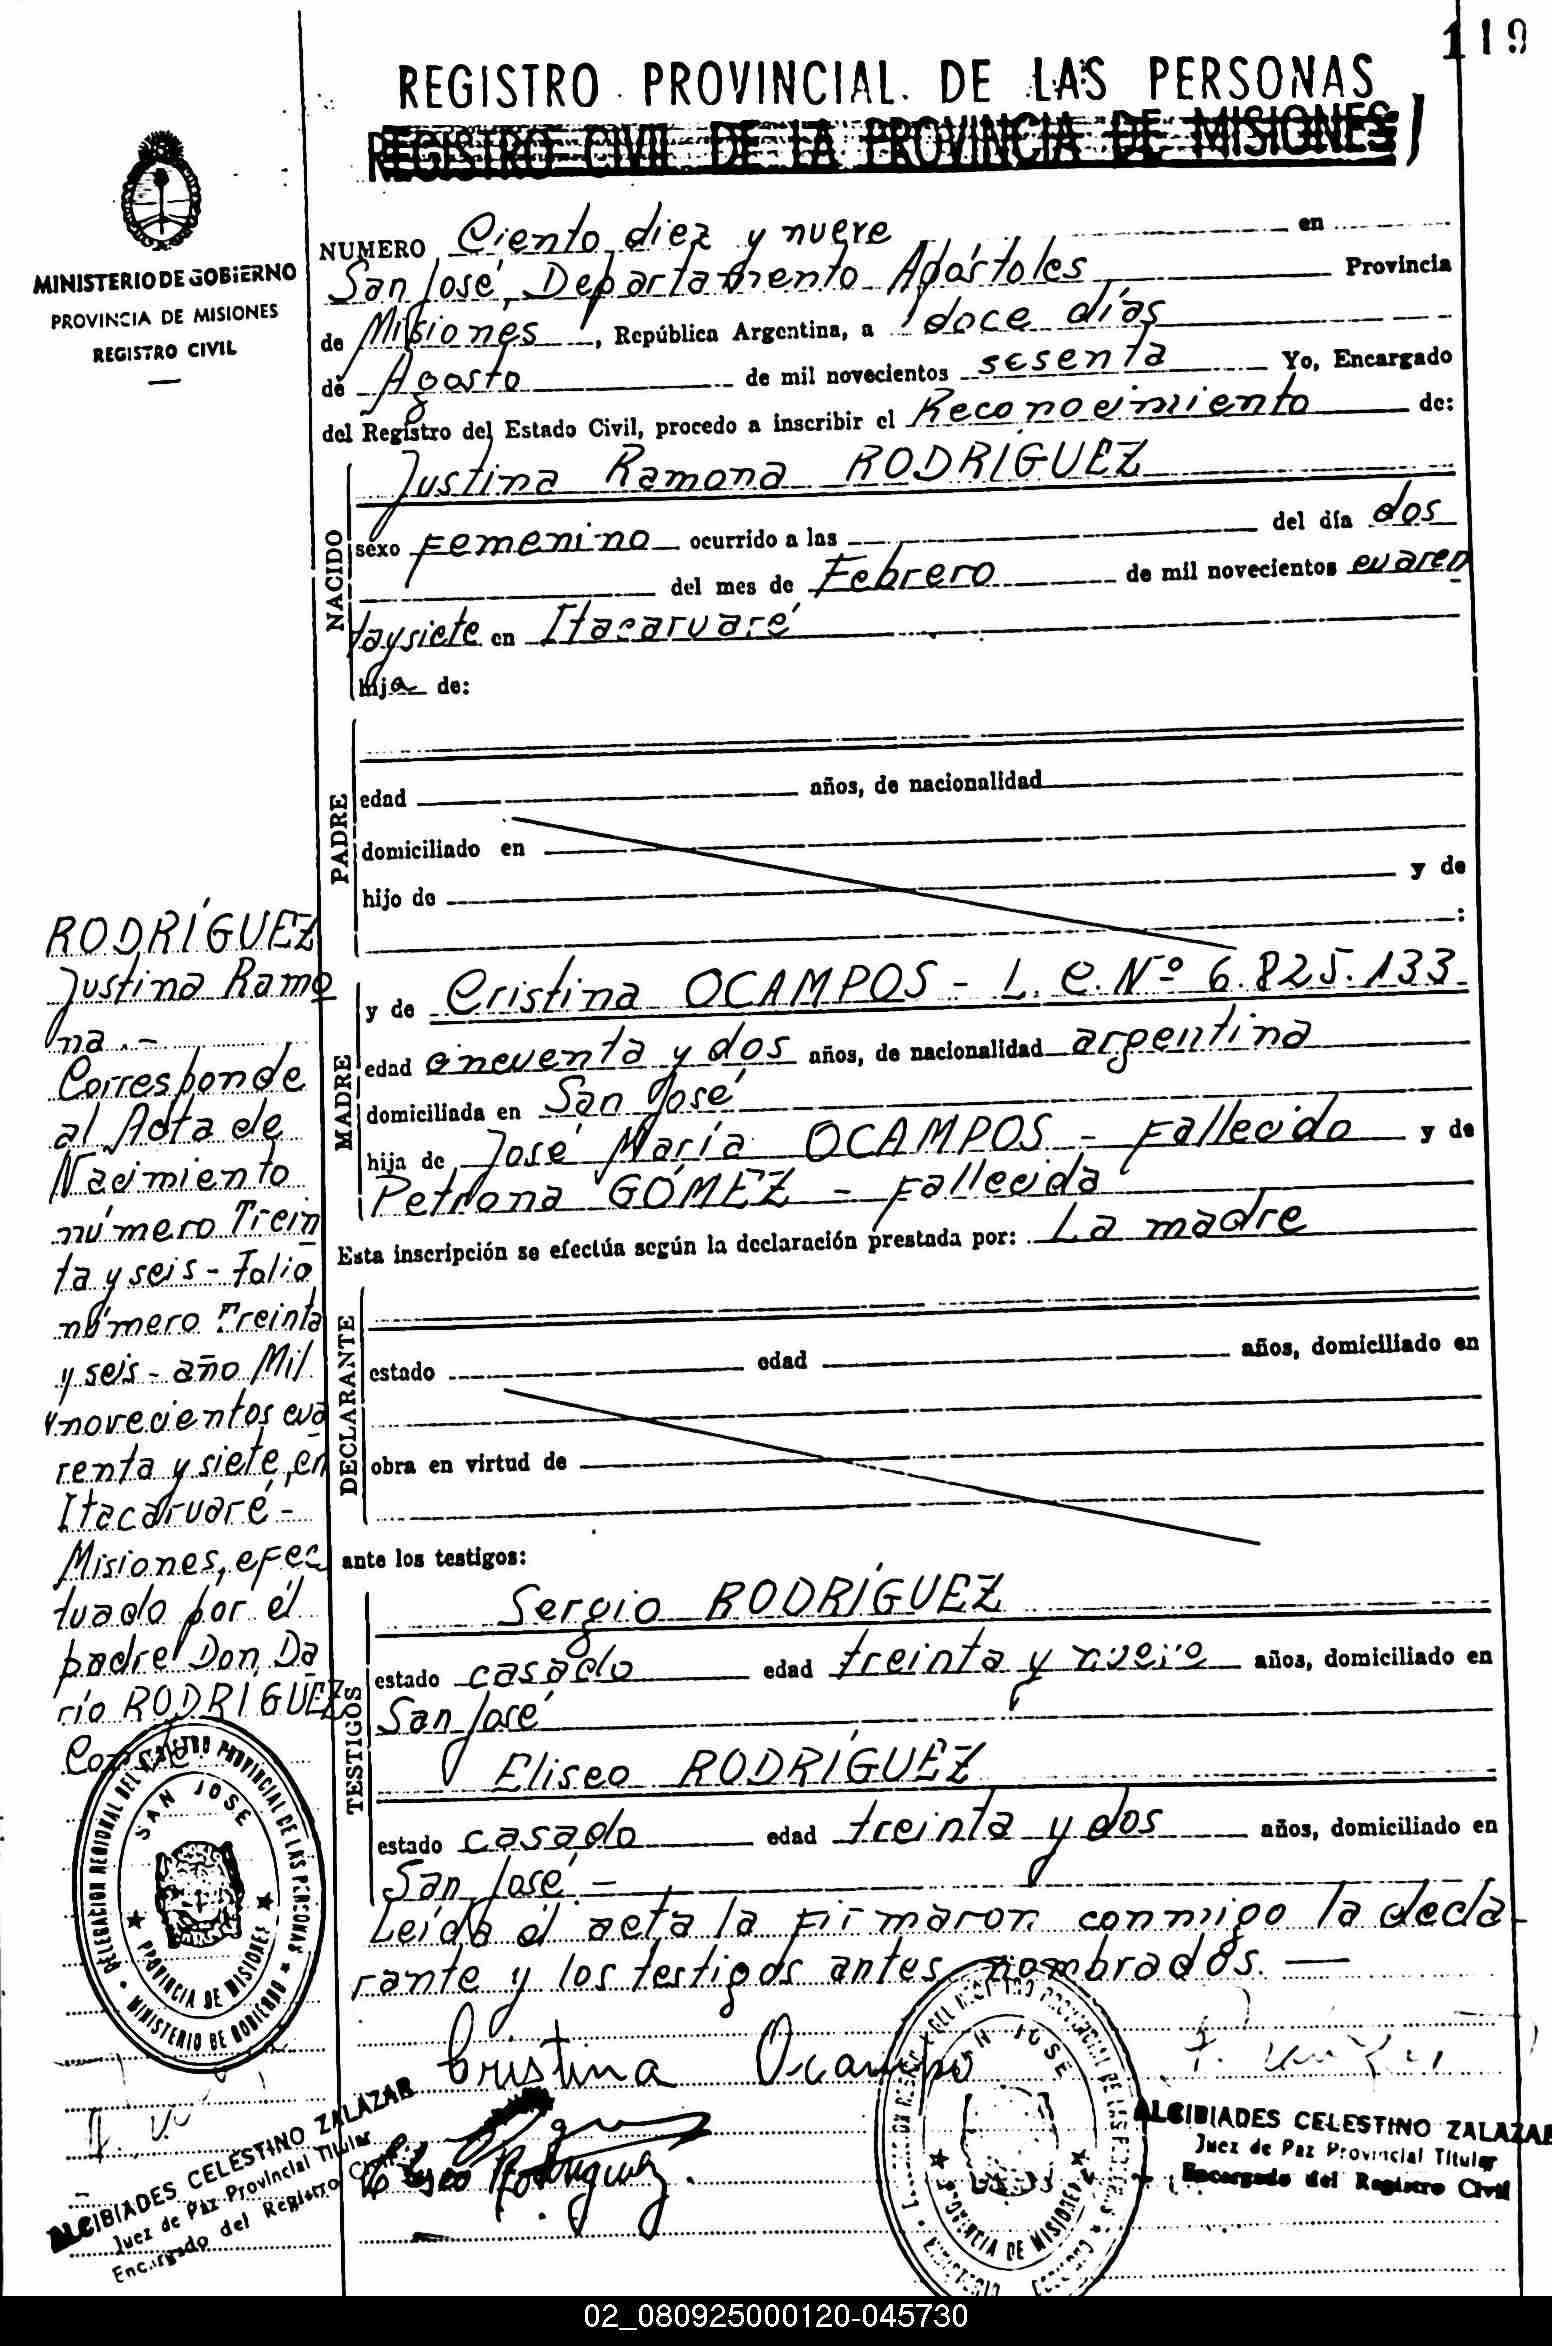 119
REGISTRO PROVINCIAL DE LAS PERSONAS
REGISTRO CIVIL DE LA PROVINCIA DE MISIONES
MINISTERIO DE GOBIERNO
PROVINCIA DE MISIONES
REGISTRO CIVIL
NUMERO Ciento diez y nueve en
San José, Departamento Apóstoles Provincia
de Misiones, República Argentina, a doce días
de Agosto de mil novecientos sesenta Yo, Encargado
del Registro del Estado Civil, procedo a inscribir el Reconocimiento de:
NACIDO
Justina Ramona RODRÍGUEZ
sexo Femenino ocurrido a las del día dos
del mes de Febrero de mil novecientos cuaren
taysiete en Itacaruaré
hija de:
PADRE
edad años, de nacionalidad
domiciliado en
hijo de y de
:
MADRE
y de Cristina OCAMPOS - L. C. Nº 6.825.133
edad cincuenta y dos años, de nacionalidad argentina
domiciliada en San José
hija de José María OCAMPOS - Fallecido y de
Petrona GÓMEZ - Fallecida
Esta inscripción se efectúa según la declaración prestada por: La madre
DECLARANTE
estado edad años, domiciliado en
obra en virtud de
ante los testigos:
TESTIGOS
Sergio RODRÍGUEZ
estado casado edad treinta y nueve años, domiciliado en
San José
Eliseo RODRÍGUEZ
estado casado edad treinta y dos años, domiciliado en
San José. -
Leída el acta la Firmaron conmigo la decla-
rante y los testigos antes nombrados. —
Cristina Ocampo
Eliseo Rodriguez.
RODRÍGUEZ
Justina Ramo
na. -
Corresponde
al Acta de
Nacimiento
número Trein
ta y seis - Folio
número Treinta
y seis - año Mil
novecientos cua
renta y siete, en
Itacaruaré -
Misiones, efec
tuado por el
padre Don Da
río RODRÍGUEZ
DELEGACION REGIONAL DEL REGISTRO PROVINCIAL DE LAS PERSONAS
SAN JOSE
PROVINCIA DE MISIONES
MINISTERIO DE GOBIERNO
ALCIBIADES CELESTINO ZALAZAR
Juez de Paz Provincial Titular
Encargado del Registro Civil
SAN JOSE
PROVINCIA DE MISIONES
ALCIBIADES CELESTINO ZALAZAR
Juez de Paz Provincial Titular
Encargado del Registro Civil
02_080925000120-045730